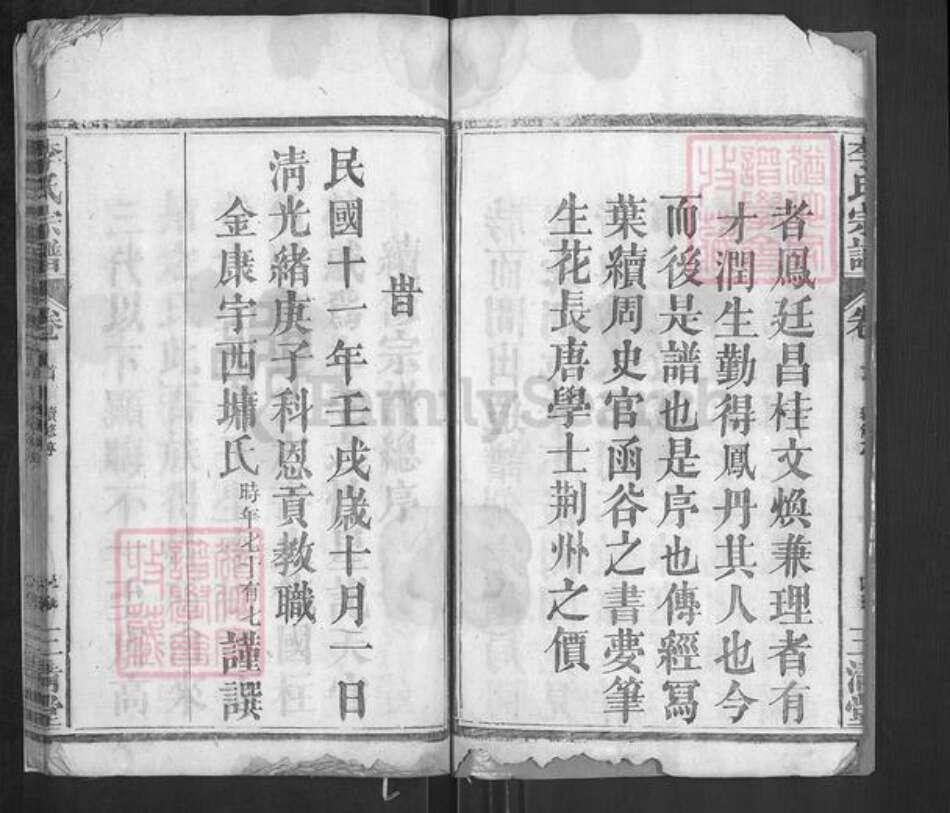 李氏宗譜
者鳳廷昌桂文煥兼理者有
才潤生勤得鳳丹其人也今
而後是譜也是序也傳經寫
葉續周史官函谷之書夢筆
生花長唐學士荆州之價
旹
民國十一年壬戌歲十月一日
清光緒庚子科恩貢教職
金康宇西墉氏時年七十有七謹譔
李氏宗譜
卷
首
三清堂
FamilySearch